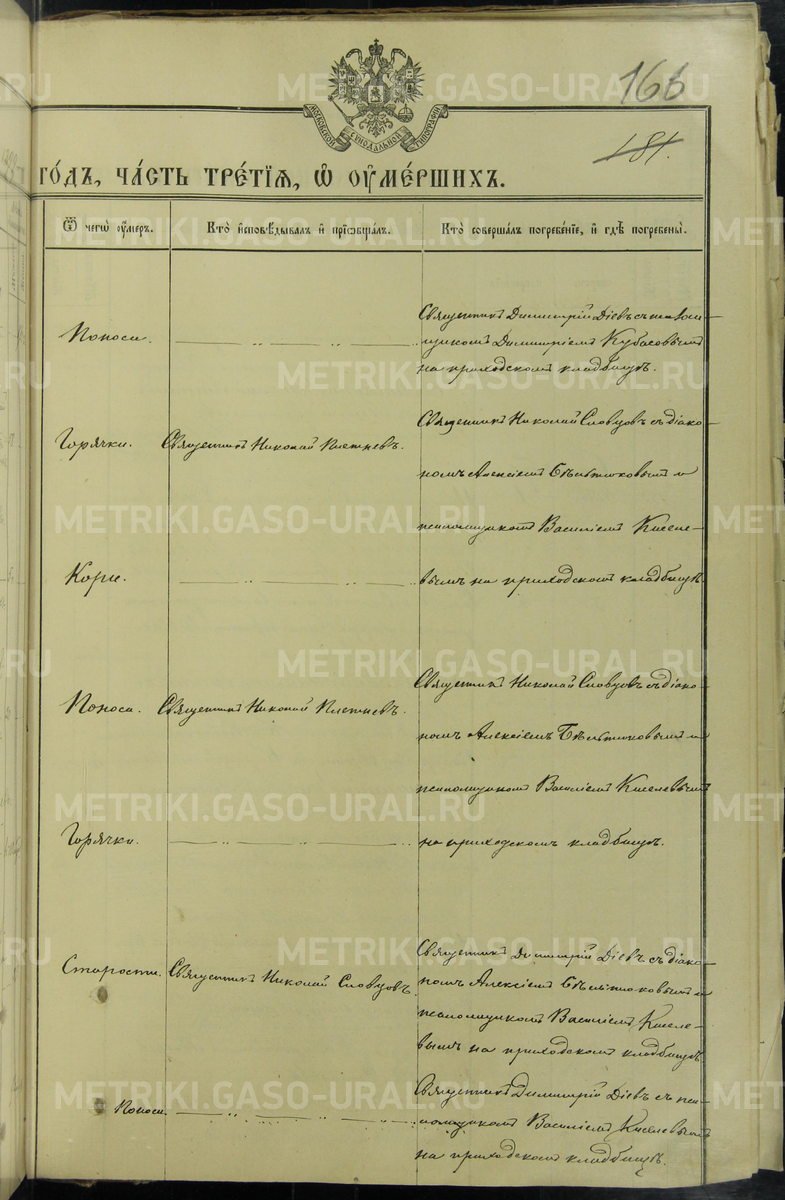 166
МОСКОВСКОЙ СѴНОДАЛЬНОЙ ТИПОГРАФІИ
181.
ГО́ДЪ, ЧА́СТЬ ТРЕ́ТІЯ, Ѡ҆ ОУ҆МЕ́РШИХЪ.
Ѿ чегѡ̀ оу҆́меръ.
Кто̀ и҆сповѣ́дывалъ и҆ прїѡбща́лъ.
Кто̀ соверша́лъ погребе́нїе, и҆ гдѣ̀ погребены̀.
Поноса.
Священникъ Димитрій Діевъ съ псалом-
щикомъ Димитріемъ Кубасовымъ
на приходскомъ кладбищѣ.
Горячки.
Священникъ Николай Плетневъ.
Священникъ Николай Словцовъ съ діако-
номъ Алексіемъ Бѣльтюковымъ и
псаломщикомъ Василіемъ Киселе-
Кори.
вымъ на приходскомъ кладбищѣ.
Поноса.
Священникъ Николай Плетневъ.
Священникъ Николай Словцовъ съ діако-
номъ Алексіемъ Бѣльтюковымъ и
псаломщикомъ Василіемъ Киселевымъ
Горячки.
на приходскомъ кладбищѣ.
Старости.
Священникъ Николай Словцовъ.
Священникъ Димитрій Діевъ съ діако-
номъ Алексіемъ Бѣльтюковымъ и
псаломщикомъ Василіемъ Киселе-
вымъ на приходскомъ кладбищѣ.
Поноса.
Священникъ Димитрій Діевъ съ пса-
ломщикомъ Василіемъ Киселевымъ
на приходскомъ кладбищѣ.
METRIKI.GASO-URAL.RU